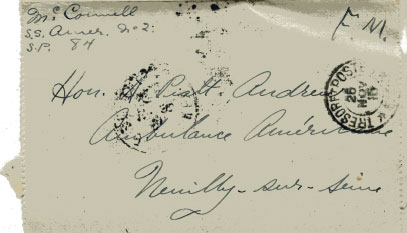 McConnell
S.S. Amer. No 2.
S.P. 84
F. M.
Hon. A. Piatt. Andrew
Ambulance Américaine
Neuilly-sur-Seine
TRESOR ET POSTES
26
NOV